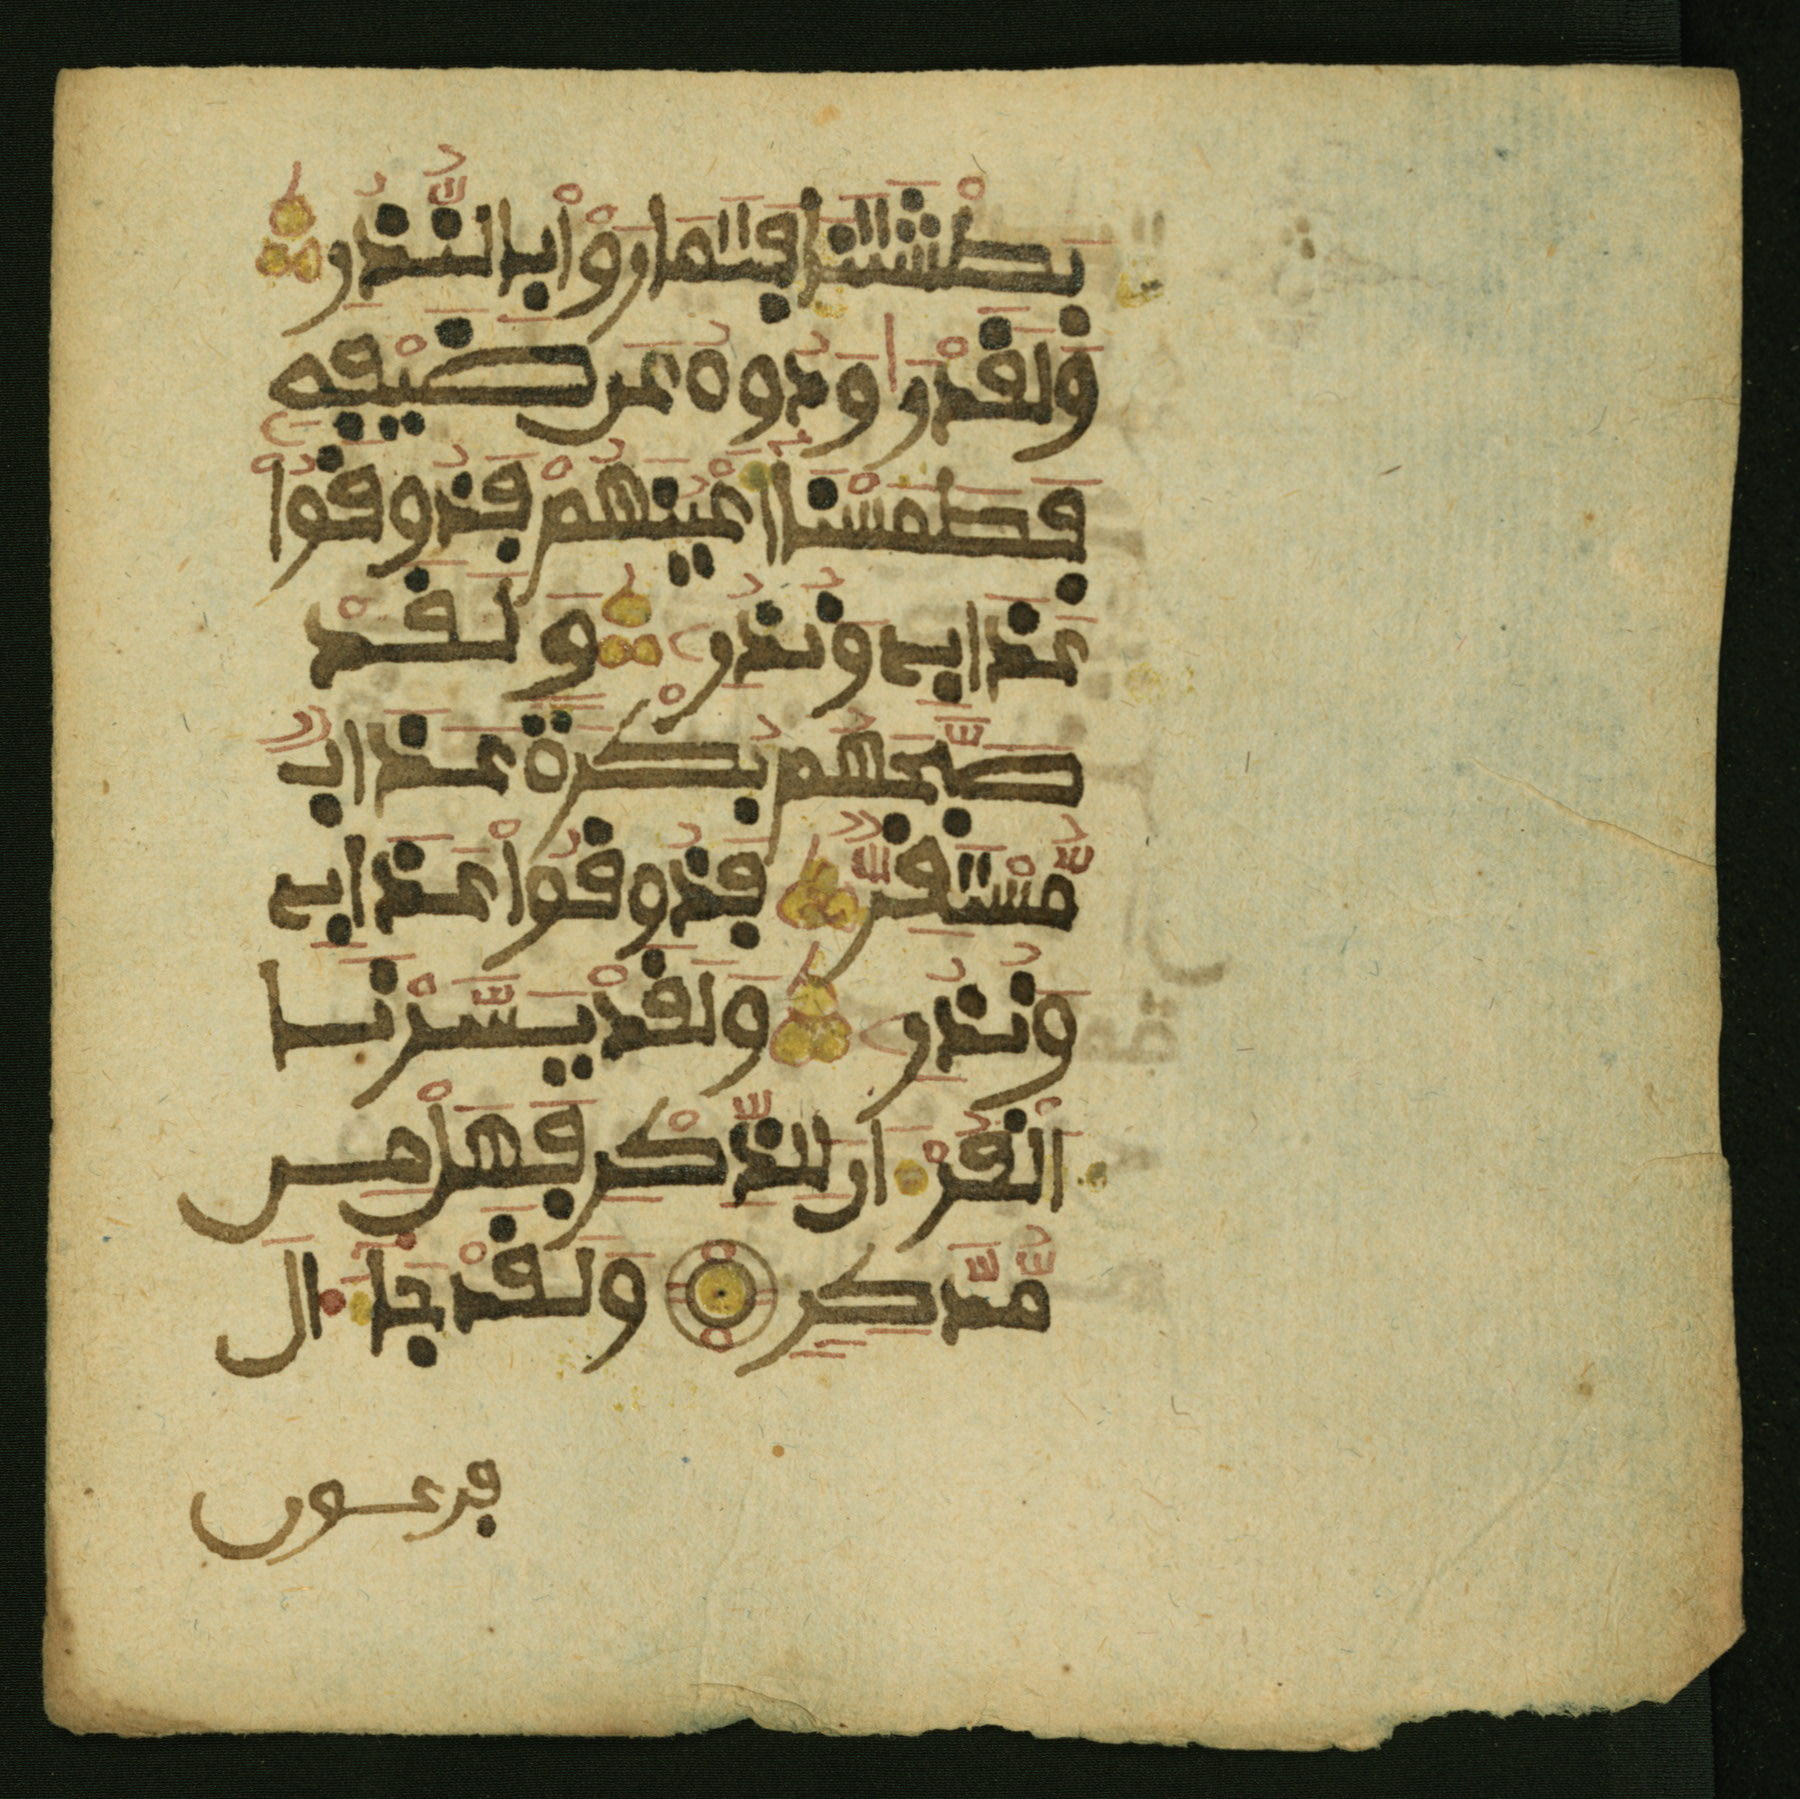 بَطْشَتَنَا فَتَمَارَوْا بِالنُّذُرِ
وَلَقَدْ رَاوَدُوهُ عَن ضَيْفِهِ
فَطَمَسْنَا أَعْيُنَهُمْ فَذُوقُواْ
عَذَابِى وَنُذُرِ وَلَقَدْ
صَبَّحَهُم بُكْرَةً عَذَابٌ
مُّسْتَقِرٌّ فَذُوقُواْ عَذَابِى
وَنُذُرِ وَلَقَدْ يَسَّرْنَا
اَلْقُرْءَانَ لِلذِّكْرِ فَهَلْ مِن
مُّدَّكِرٍ وَلَقَدْ جَاءَ الَ
فرعون